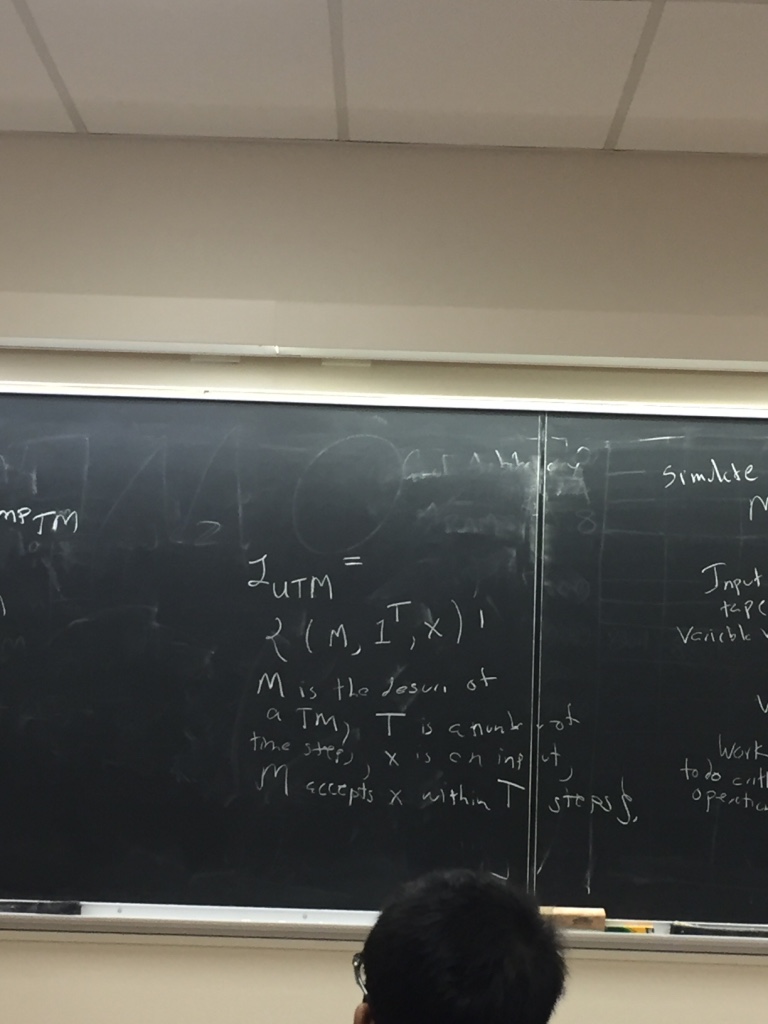 mpTM
L_UTM =
{ (M, 1^T, x) |
M is the descr. of
a TM, T is a number of
time steps, x is an input,
M accepts x within T steps}.
Simulate
Input
tape
Variable
Work
to do